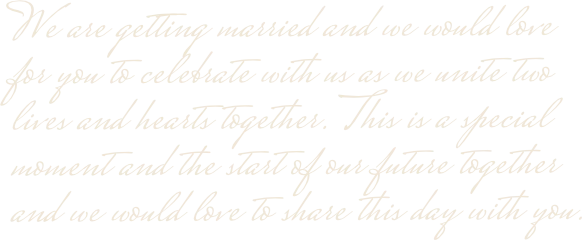 We are getting married and we would love
for you to celebrate with us as we unite two
lives and hearts together. This is a special
moment and the start of our future together
and we would love to share this day with you.